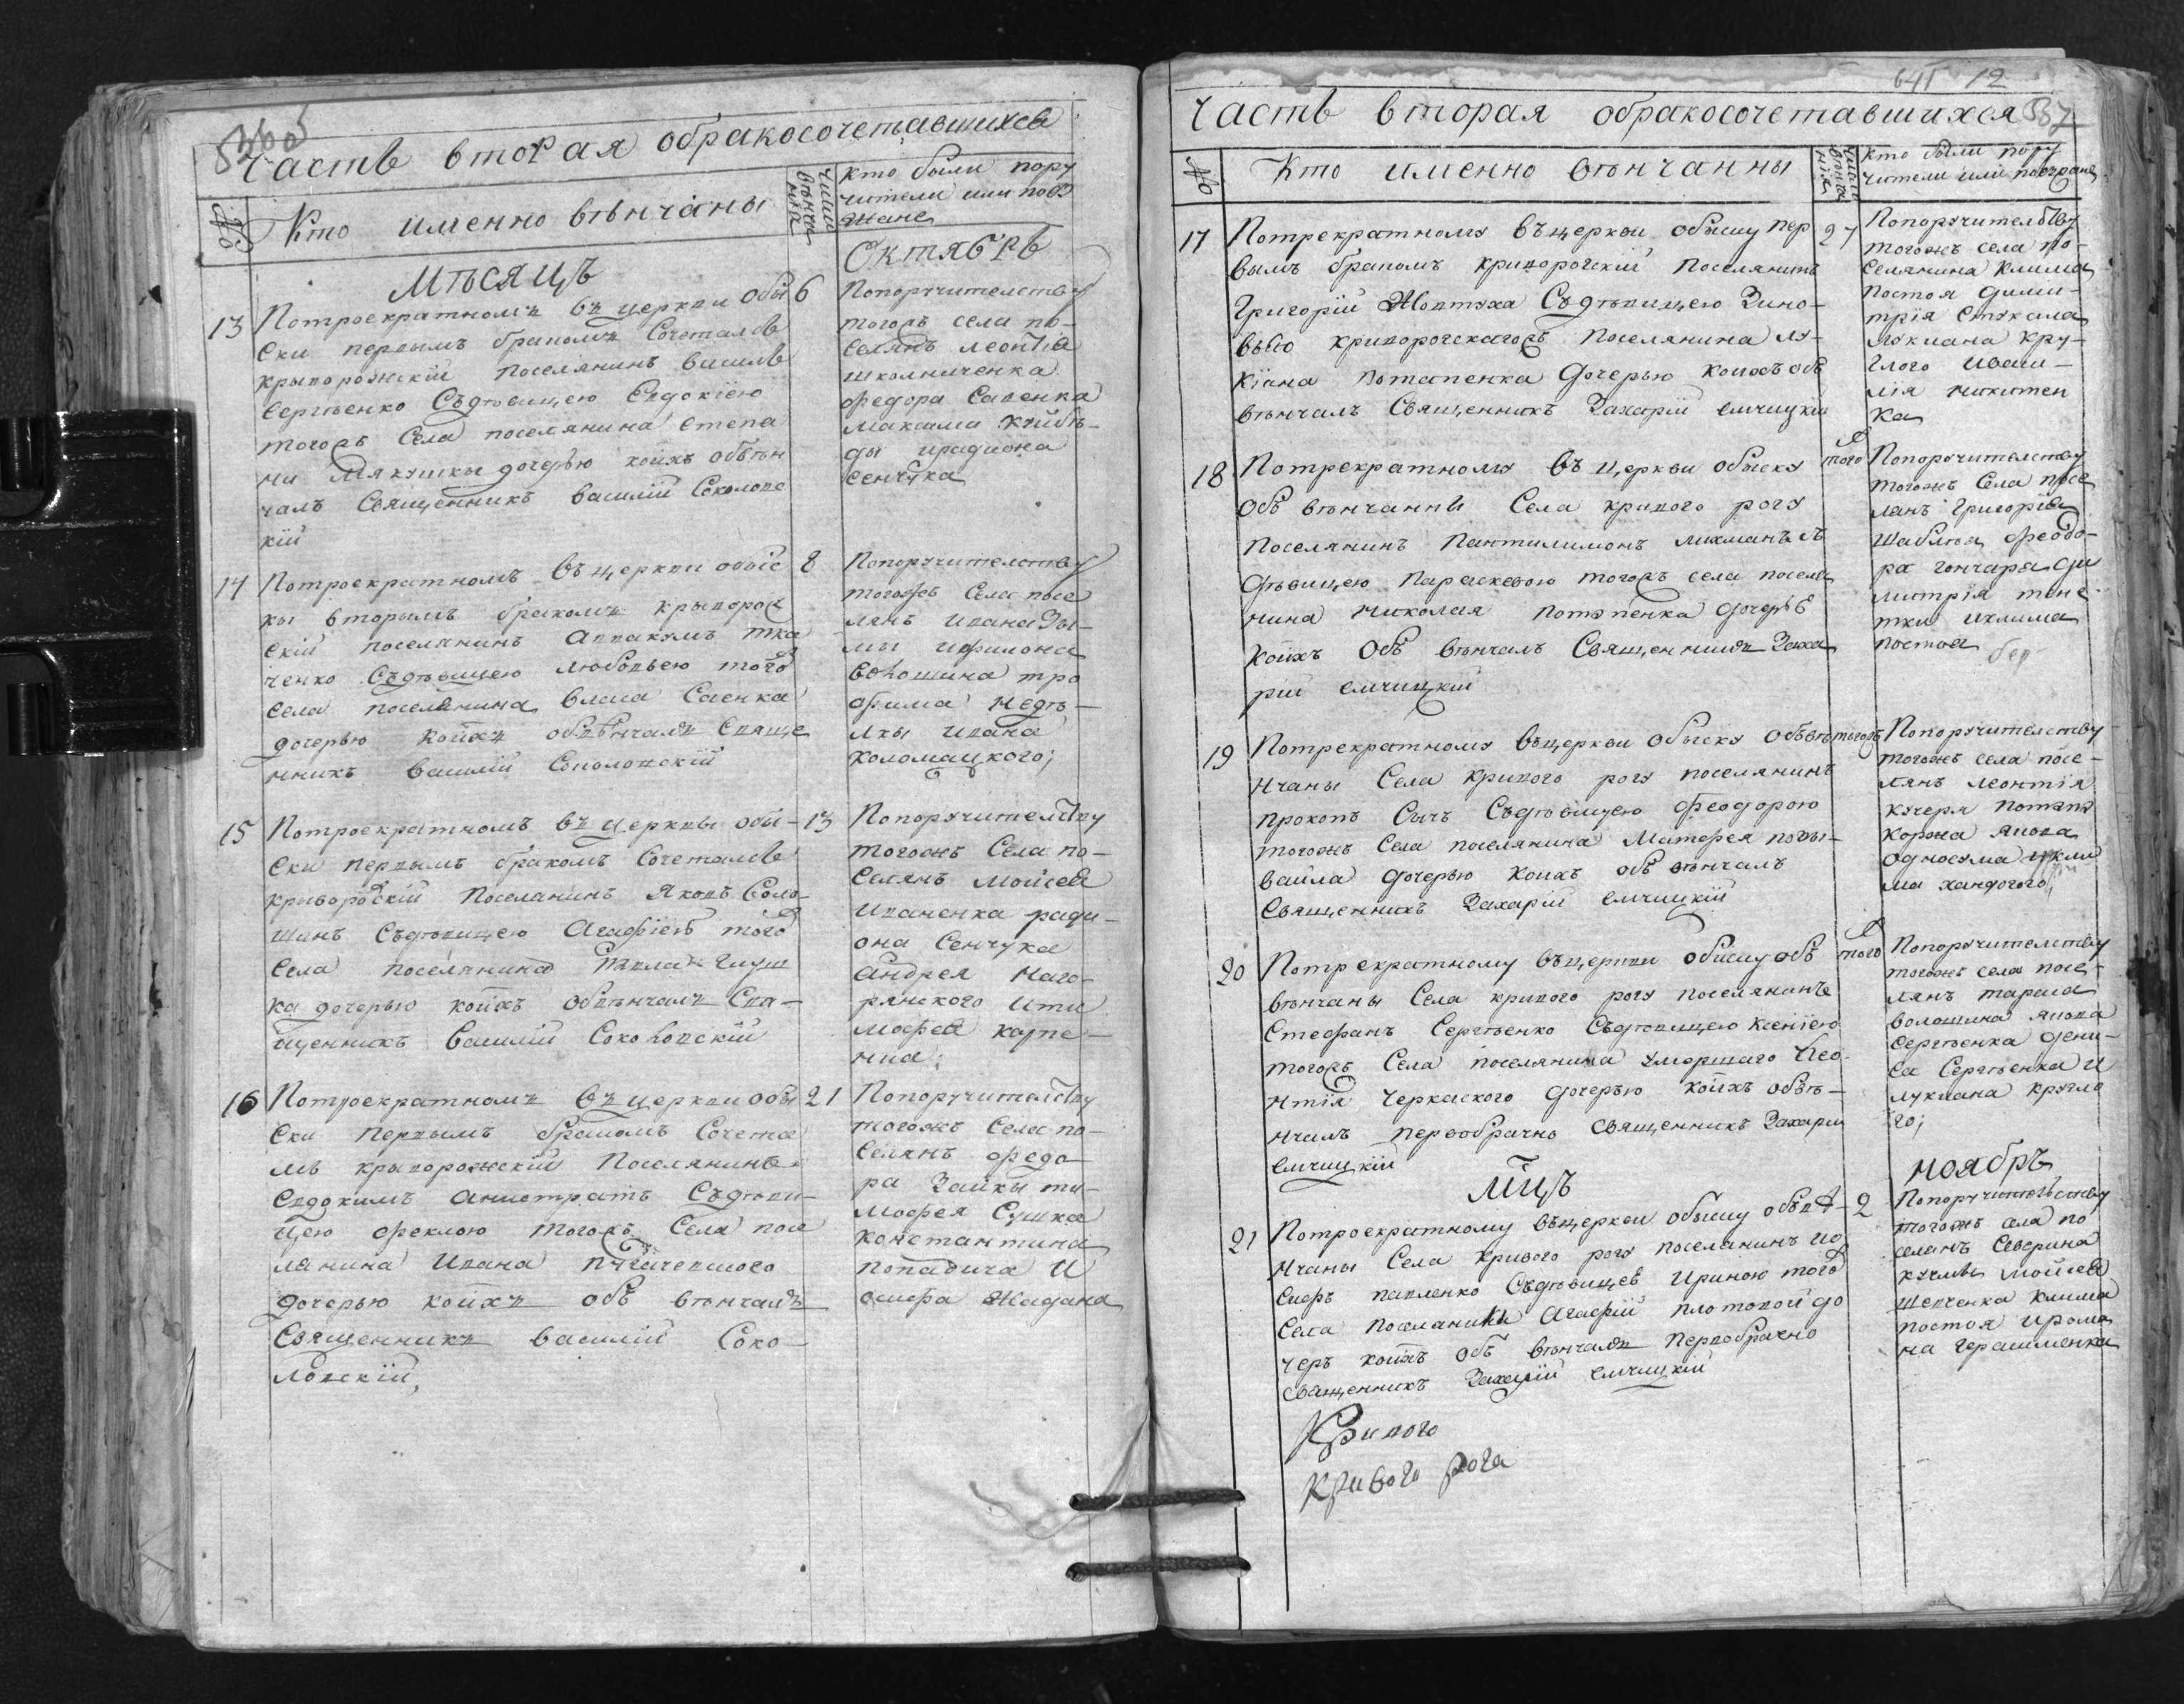 Часть вторая обракосочетавшихся
№
Кто именно вѣнчаны
число вѣнча нія
кто были пору
чители или поѣз
жане
Мѣсяцъ
Октябрь
13
Потроекратномъ въ церкви обы
ски первымъ бракомъ Сочетался
крыворожскій поселянинъ василь
Сергѣенко Съдѣвицею Евдокіею
тогожъ Села поселянина степа
ни Мякушки дочерью коихъ обвѣн
чалъ Священникъ василій Соколовс
кій
6
Попоручителству
тогожъ села по-
селянъ леонтія
школниченка
федора Савенка
максима кчибѣ-
ды ирадиона
сенчука
14
Потроекратномъ въ церкви обыс
кы вторымъ бракомъ крыворож
скій поселянинъ аввакумъ тка
ченко Съдѣвицею любовьею того
села поселянина власа Саенка
дочерью коихъ обвѣнчалъ Свяще
нникъ василій Соколовскій
8
Попоручителству
тогожъ Села посе
лянъ ивана Зы-
мы ифилона
волошина тро
фима недѣ-
лкы ивана
коломацкого;
15
Потроекратномъ въ церквы обы-
ски первымъ бракомъ Сочетался
криворожскій поселянинъ Яковъ Соло-
шинъ Съдѣвицею Агафіею того
Села поселянина Павла Глущ
ка дочерью коихъ обвѣнчалъ Свя-
щенникъ василій Соколовскій
13
Попоручителству
тогожъ Села по-
Селянъ моисея
иваненка ради-
она Сенчука
андрея наго-
рянского ити
мофея карпе-
нка;
16
Потроекратномъ въ церкви обы
ски первымъ бракомъ Сочета
лъ крыворожскій поселянинъ
Евдокимъ анистратъ Съдѣви-
цею феклою тогожъ Села посе
лянина ивана
дочерью коихъ объ вѣнчалъ
Священникъ василій Соко-
ловскій,
21
Попоручителству
тогожъ Села по-
Селянъ федо
ра Зайкы ти-
мофея Сушка
константина
попадича и
осифа Жадана
641 12
Часть вторая обракосочетавшихся
№
Кто именно вѣнчанны
число вѣнча нія
кто были пору
чители или поѣзжане
17
Потрекратному въ церкви обыску пер
вымъ бракомъ криворогскій поселянинъ
Григорій Жовтуха Съдѣвицею Зино-
вьею криворогскагожъ поселянина лу-
кіана потапенка дочерью коихъ объ
вѣнчалъ Священникъ Захарій елчицкій
27
Попоручителству
тогожъ села по-
селянина клима
постоя дими-
трія стукала
лукиана кру-
глого иваси-
лія никитен
ка
18
Потрекратному въ церкви обыску
объ вѣнчанны Села кривого рогу
поселянинъ пантилимонъ лихманъ съ
дѣвицею параскевою тогожъ села поселя
нина николая потапенка дочерью
коихъ объ вѣнчалъ Священникъ Заха
рій елчицкій
того
Попоручителству
тогожъ Села посе
лянъ григорія
шаблія феодо-
ра гончара ди
митрія
тки иклима
постоя
19
Потрекратному въцеркви обыску объвѣ
нчаны Села кривого рогу поселянинъ
прокопъ Сычъ Съдѣвицею феодорою
тогожъ Села поселянина Матфея повы-
вайла дочерью коихъ объ вѣнчалъ
Священникъ Захарій елчицкій
тогожъ
Попоручителству
тогожъ села посе-
лянъ леонтія
кучеря потапа
коржа якова
односума икли
ма хандогого;
20
Потрекратному въцеркви обыску объ
вѣнчаны Села кривого рогу поселянинъ
Стефанъ Сергѣенко Съдѣвицею ксеніею
тогожъ Села поселянина умершаго лео-
нтія черкаского дочерью коихъ обвѣ-
нчалъ первобрачно священникъ Захарій
елчицкій
того
Попоручителству
тогожъ села посе-
лянъ тараса
волошина якова
сергѣенка дени-
са Сергѣенка и
лукиана кругло
го;
мцъ
ноябрь
21
Потроекратному въцеркви обыску объвѣ-
нчаны Села кривого рогу поселянинъ ио
сифъ павленко Съдѣвицею ириною того
Села поселянины агафіи плотовой до
черъ коихъ объ вѣнчалъ первобрачно
священникъ Захарій елчицкій
2
Попоручителству
тогожъ села по
селянъ северина
моисея
шевченка клима
постоя ирома
на герасименка
Кривого
Кривого рога